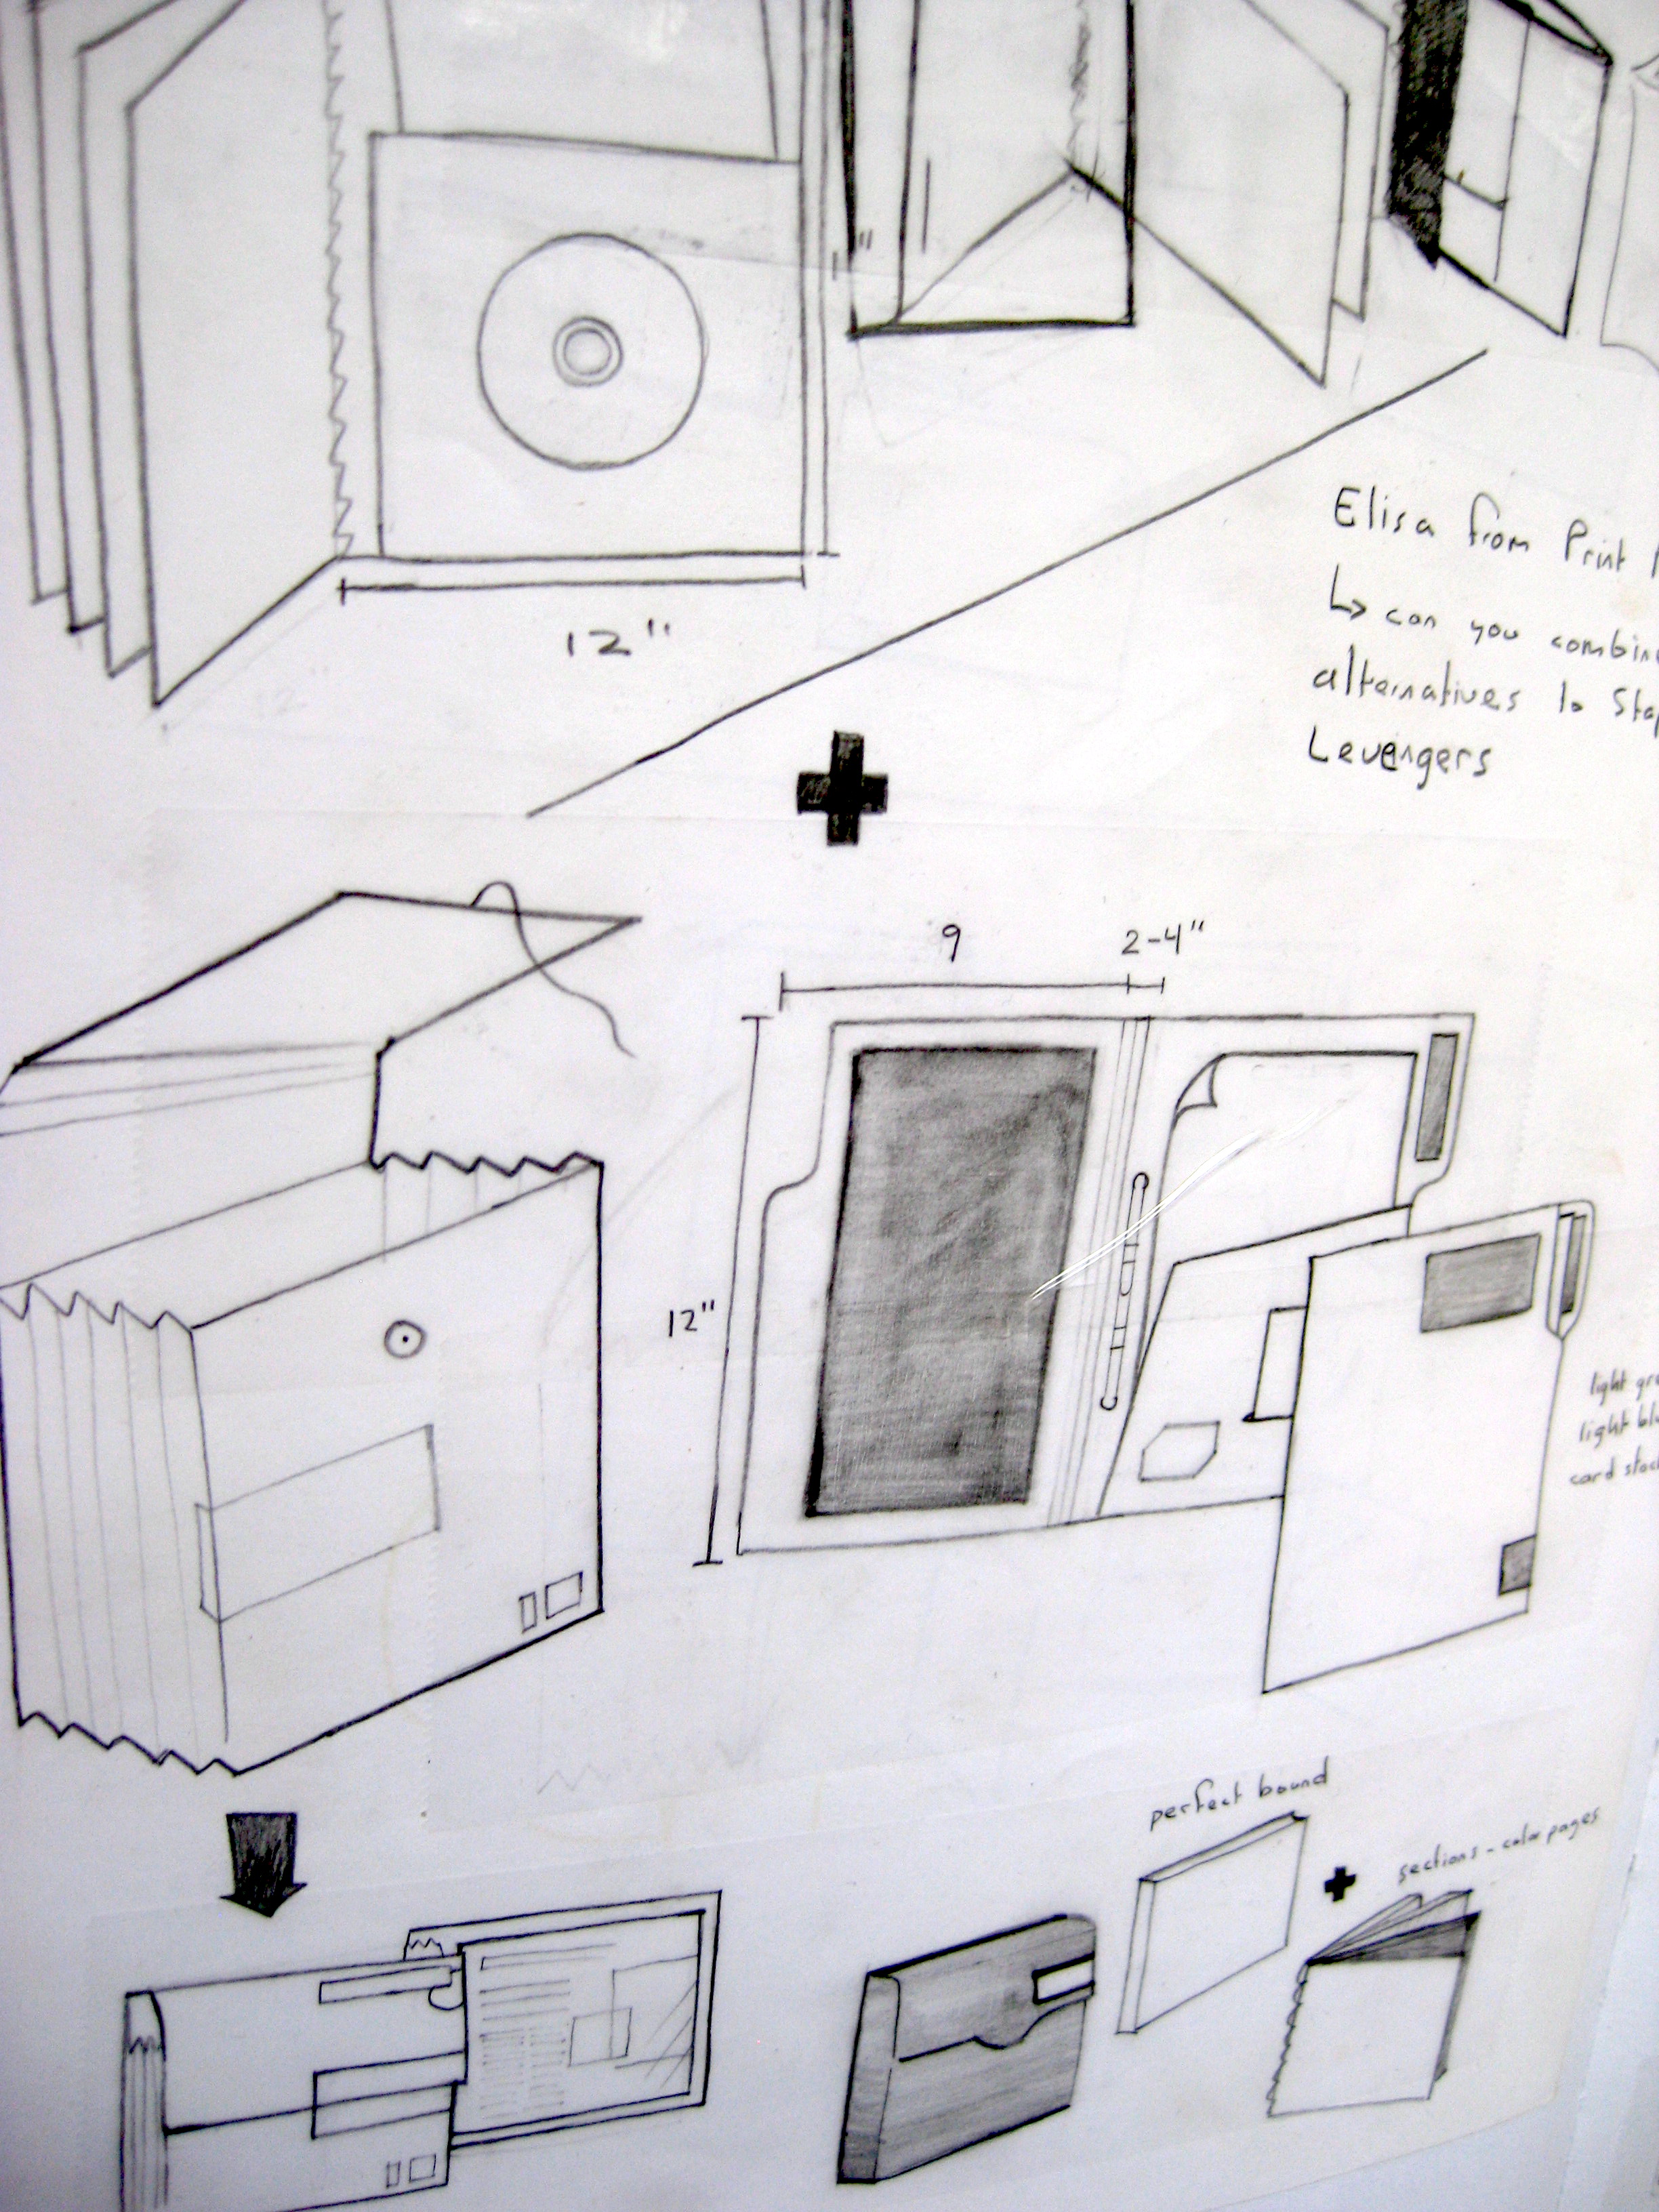 12"
Elisa from Print
↳ can you combine
alternatives to
Levengers
9
2-4"
12"
light
light
card
perfect bound
sections - color pages